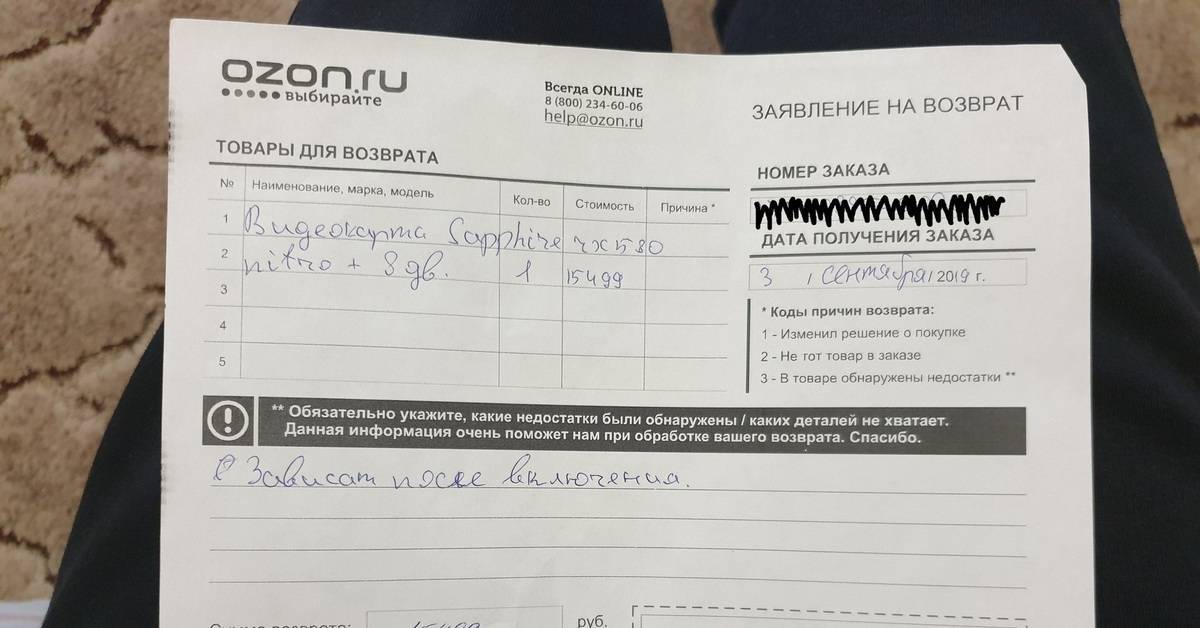 ozon.ru
выбирайте
Всегда ONLINE
8 (800) 234-60-06
help@ozon.ru
ЗАЯВЛЕНИЕ НА ВОЗВРАТ
ТОВАРЫ ДЛЯ ВОЗВРАТА
№ Наименование, марка, модель Кол-во Стоимость Причина *
1 Видеокарта Sapphire rx580
2 nitro + 8 1 15499
3
4
5
НОМЕР ЗАКАЗА
ДАТА ПОЛУЧЕНИЯ ЗАКАЗА
3 / сентября / 2019 г.
* Коды причин возврата:
1 - Изменил решение о покупке
2 - Не тот товар в заказе
3 - В товаре обнаружены недостатки **
** Обязательно укажите, какие недостатки были обнаружены / каких деталей не хватает.
Данная информация очень поможет нам при обработке вашего возврата. Спасибо.
Зависат после включения.
руб.